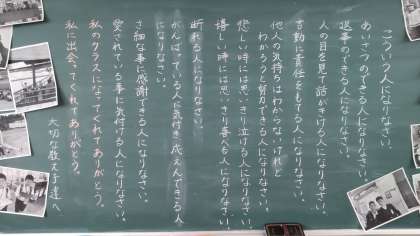 こういう人になりなさい。
あいさつのできる人になりなさい。
返事のできる人になりなさい。
人の目を見て話がきける人になりなさい。
言動に責任をもてる人になりなさい。
他人の気持ちはわからないけれど
わかろうと努力できる人になりなさい。
悲しい時には思いきり泣ける人になりなさい。
嬉しい時には思いきり喜べる人になりなさい。
断れる人になりなさい。
がんばっている人に気付き応えんできる人
になりなさい。
ささ細な事に感謝できる人になりなさい。
愛されている事に気付ける人になりなさい。
私のクラスになってくれてありがとう。
私に出会ってくれてありがとう。
大切な教え子達へ